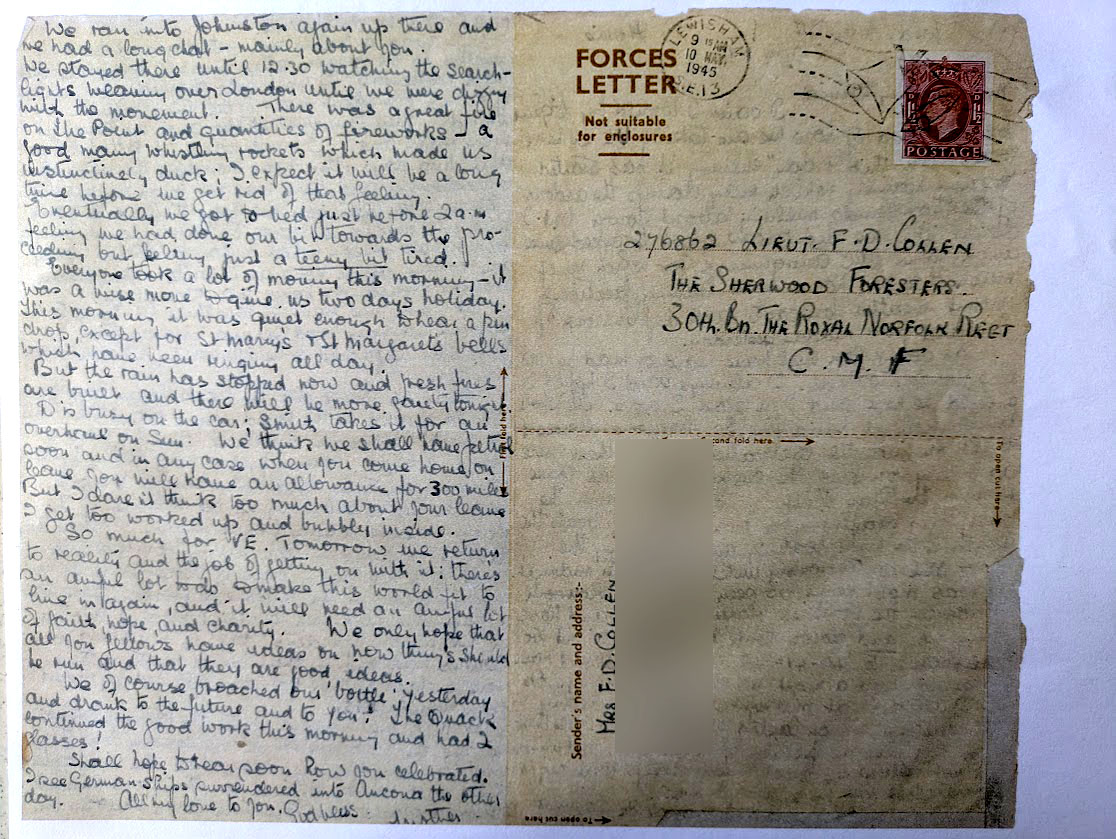 We ran into Johnston again up there and
we had a long chat – mainly about you.
We stayed there until 12.30 watching the search-
lights weaving over London until we were dizzy
with the movement. There was a great fire
on the Point and quantities of fireworks – a
good many whistling rockets which made us
instinctively duck; I expect it will be a long
time before we get rid of that feeling.
Eventually we got to bed just before 2 a.m.
feeling we had done our bit towards the pro-
ceedings but feeling just a teeny bit tired.
Everyone took a lot of moving this morning – it
was a wise move to give us two days holiday.
This morning it was quiet enough to hear a pin
drop, except for St Marys & St Margarets bells
which have been ringing all day.
But the rain has stopped now and fresh fires
are built and there will be more gaiety tonight
D is busy on the car; Smith takes it for an
overhaul on Sun. We think we shall have petrol
soon and in any case when you come home on
leave you will have an allowance for 300 miles
But I daren't think too much about your leave
I get too worked up and bubbly inside.
So much for VE. Tomorrow we return
to reality and the job of getting on with it: there's
an awful lot to do to make this world fit to
live in again, and it will need an awful lot
of faith, hope, and charity. We only hope that
all you fellows have ideas on how things should
be run and that they are good ideas.
We of course broached our 'bottle' yesterday
and drank to the future and to you! The Quack
continued the good work this morning and had 2
glasses!
Shall hope to hear soon how you celebrated.
I see German ships surrendered into Ancona the other
day. All my love to you. God bless.
Mother
FORCES
LETTER
Not suitable
for enclosures
LEWISHAM
9 15 AM
10 MAY
1945
S.E.13
1½D
POSTAGE
276862 LIEUT. F. D. COLLEN
THE SHERWOOD FORESTERS
30th. Bn. THE ROYAL NORFOLK REGT
C. M. F
First fold here
Second fold here
To open cut here
Sender's name and address:-
MRS F. D. COLLEN
To open cut here